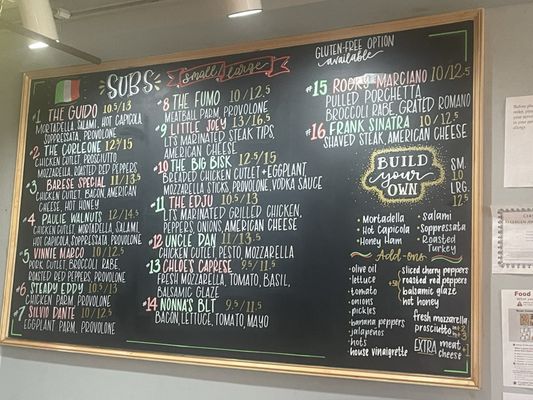 SUBS
small/large
#1 THE GUIDO 10.5/13
MORTADELLA, SALAMI, HOT CAPICOLA
SUPPRESATA, PROVOLONE
#2 THE CORLEONE 12.5/15
CHICKEN CUTLET, PROSCIUTTO
MOZZARELLA, ROASTED RED PEPPERS
#3 BARESE SPECIAL 11/13.5
CHICKEN CUTLET, BACON, AMERICAN
CHEESE, HOT HONEY
#4 PAULIE WALNUTS 12/14.5
CHICKEN CUTLET, MORTADELLA, SALAMI,
HOT CAPICOLA, SUPPRESATA, PROVOLONE
#5 VINNIE MARCO 10/12.5
PORK CUTLET, BROCCOLI RABE,
ROASTED RED PEPPER, PROVOLONE
#6 STEADY EDDY 10.5/13
CHICKEN PARM, PROVOLONE
#7 SILVIO DANTE 10/12.5
EGGPLANT PARM, PROVOLONE
#8 THE FUMO 10/12.5
MEATBALL PARM, PROVOLONE
#9 LITTLE JOEY 13/16.5
LT'S MARINATED STEAK TIPS,
AMERICAN CHEESE
#10 THE BIG BISK 12.5/15
BREADED CHICKEN CUTLET + EGGPLANT,
MOZZARELLA STICKS, PROVOLONE, VODKA SAUCE
#11 THE EDJU 10.5/13
LT'S MARINATED GRILLED CHICKEN,
PEPPERS, ONIONS, AMERICAN CHEESE
#12 UNCLE DAN 11/13.5
CHICKEN CUTLET, PESTO, MOZZARELLA
#13 CHLOE'S CAPRESE 9.5/11.5
FRESH MOZZARELLA, TOMATO, BASIL,
BALSAMIC GLAZE
#14 NONNA'S BLT 9.5/11.5
BACON, LETTUCE, TOMATO, MAYO
GLUTEN-FREE OPTION
available
#15 ROCKY MARCIANO 10/12.5
PULLED PORCHETTA
BROCCOLI RABE GRATED ROMANO
#16 FRANK SINATRA 10/12.5
SHAVED STEAK, AMERICAN CHEESE
BUILD
your
OWN
SM. 10
LRG. 12.5
• Mortadella
• Hot Capicola
• Honey Ham
• Salami
• Suppressata
• Roasted Turkey
Add-ons
• olive oil
• lettuce
• tomato
• onions
• pickles
• banana peppers
• jalapeños
• hots
• house vinaigrette
sliced cherry peppers
roasted red peppers
balsamic glaze
hot honey
fresh mozzarella
prosciutto
EXTRA meat
cheese